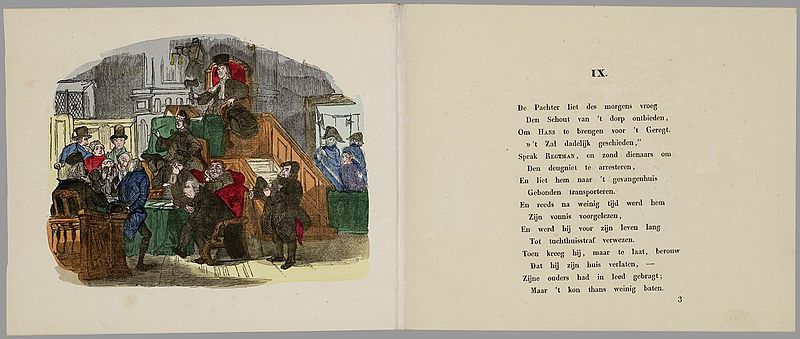 IX.
De Pachter liet des morgens vroeg
Den Schout van 't dorp ontbieden,
Om HANS te brengen voor 't Geregt.
» 't Zal dadelijk geschieden,"
Sprak REGTMAN, en zond dienaars om
Den deugniet te arresteren,
En liet hem naar 't gevangenhuis
Gebonden transporteren.
En reeds na weinig tijd werd hem
Zijn vonnis voorgelezen,
En werd hij voor zijn leven lang
Tot tuchthuisstraf verwezen.
Toen kreeg hij, maar te laat, berouw
Dat hij zijn huis verlaten, —
Zijne ouders had in leed gebragt;
Maar 't kon thans weinig baten.
3